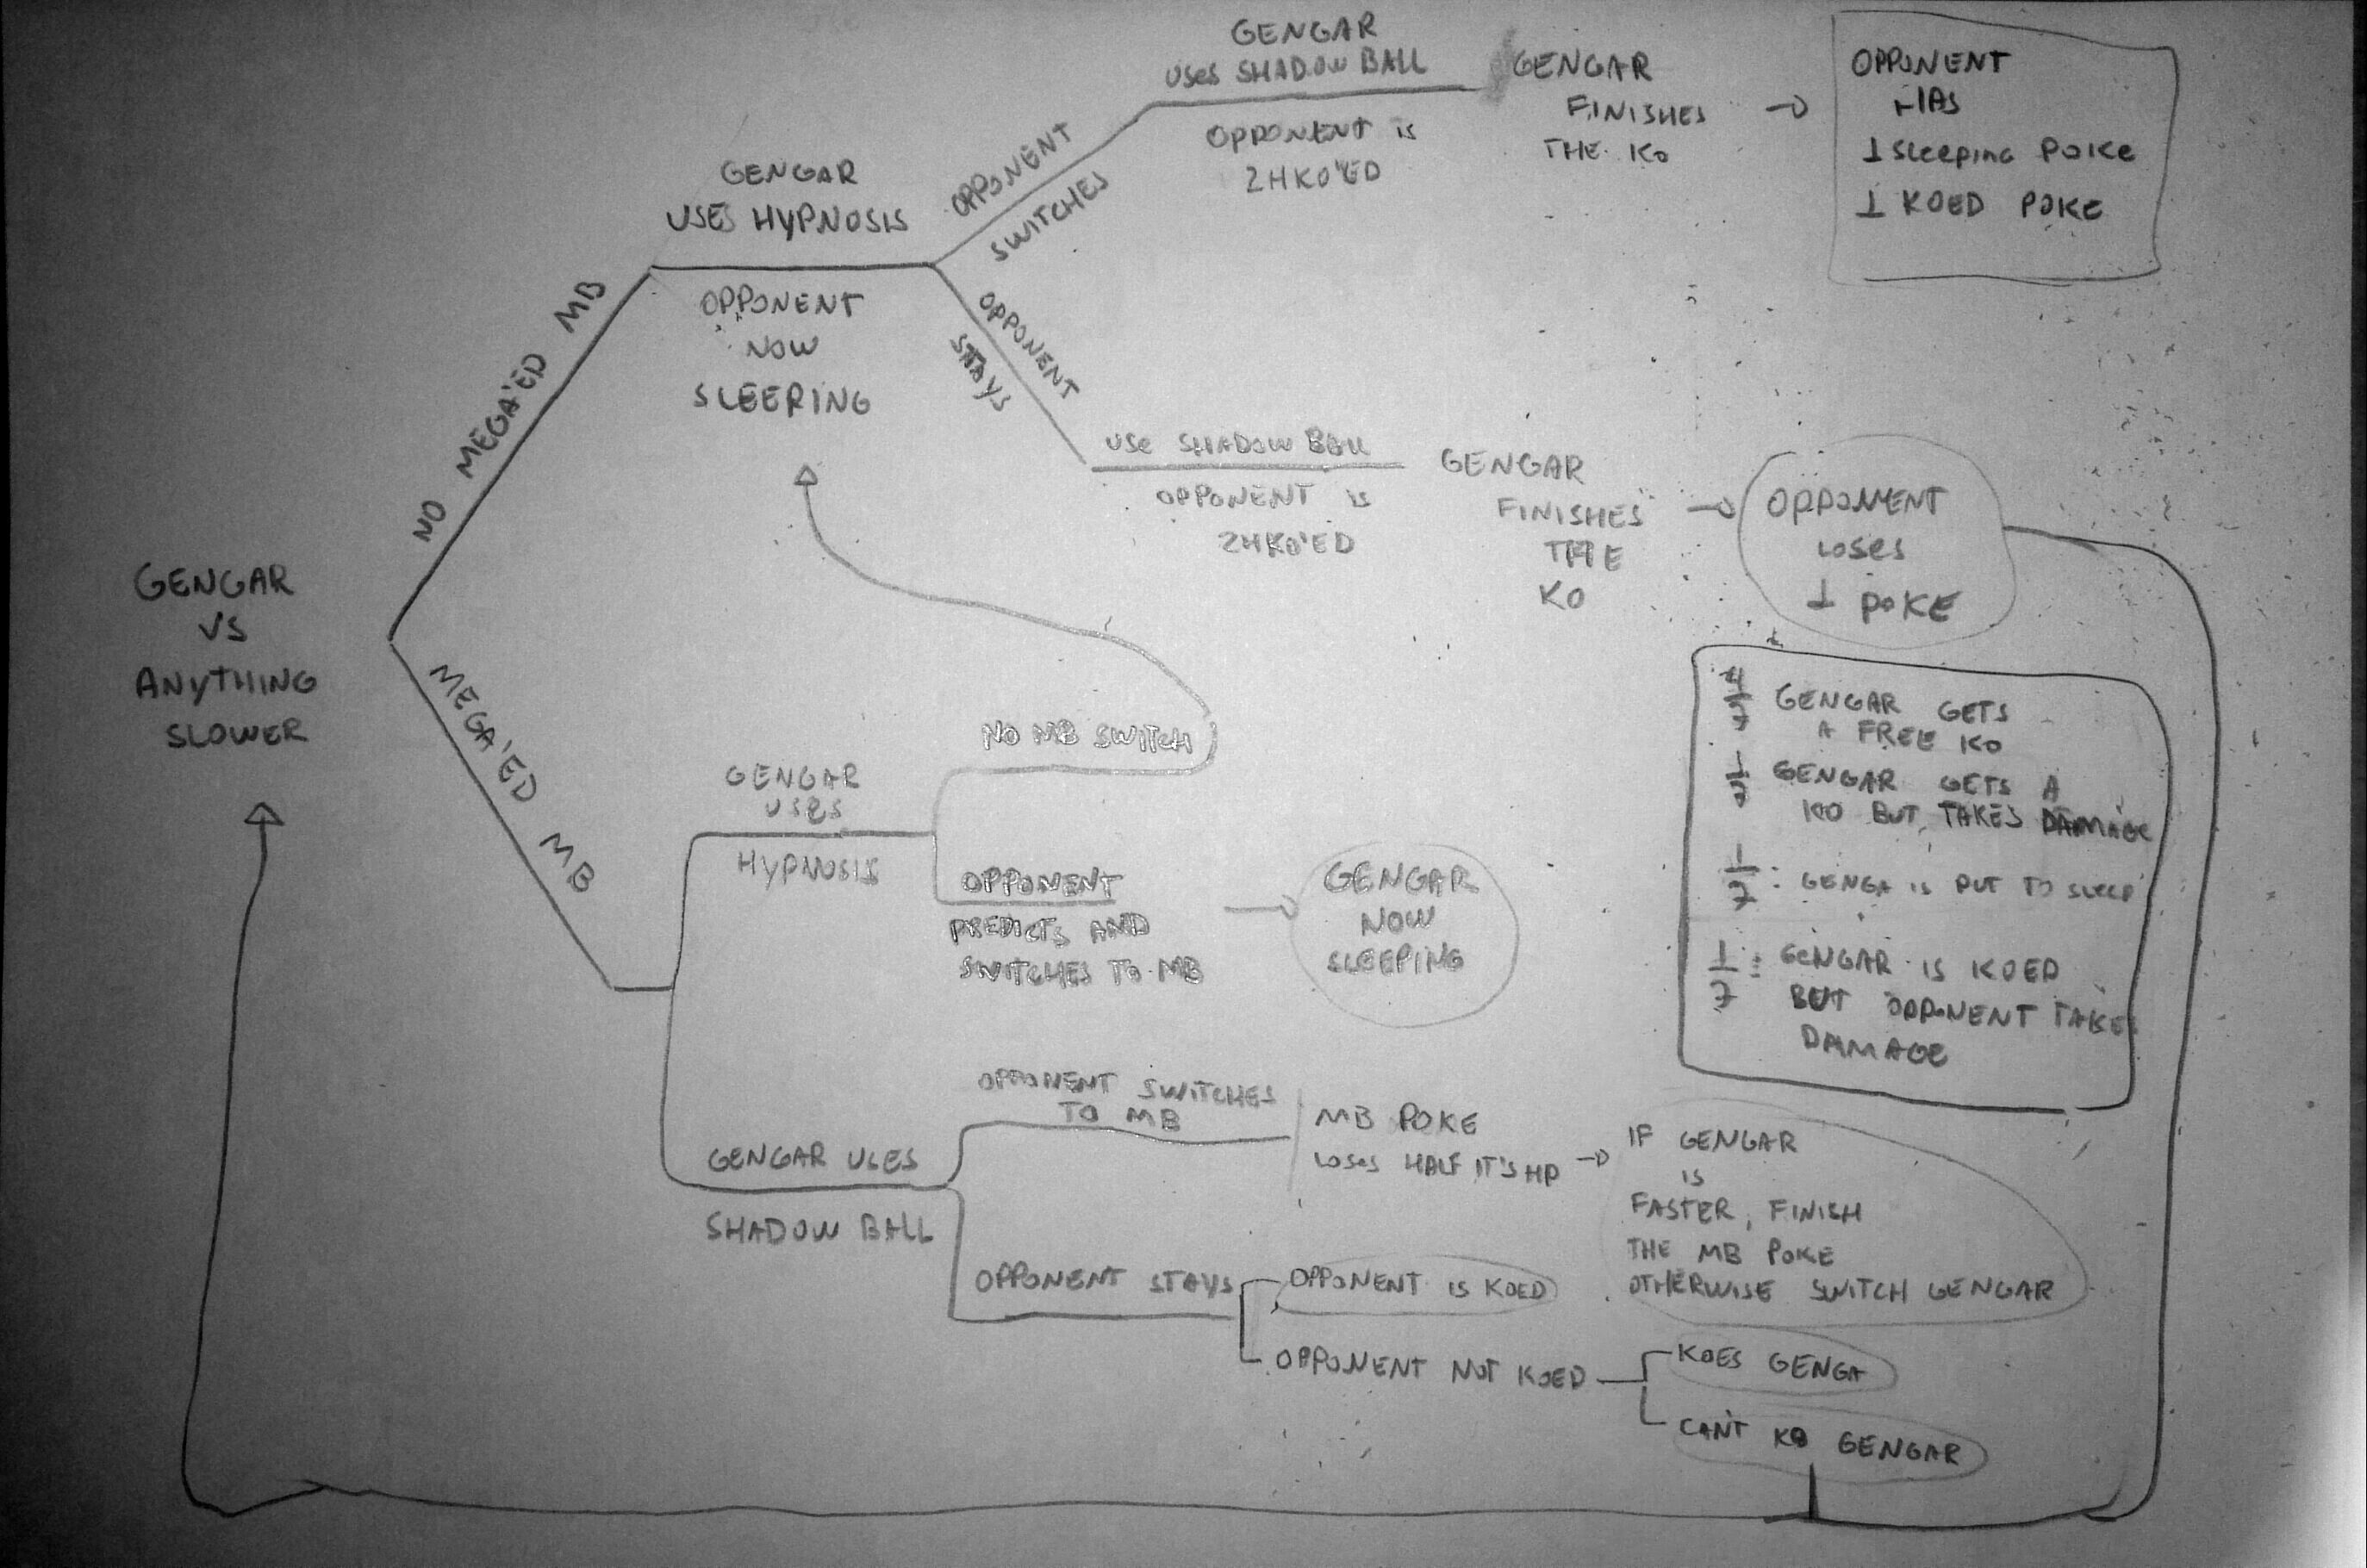 GENGAR
VS
ANYTHING
SLOWER
NO MEGA'ED MB
GENGAR
USES HYPNOSIS
OPPONENT
NOW
SLEEPING
OPPONENT
SWITCHES
GENGAR
USES SHADOW BALL
OPPONENT IS
2HKO'ED
GENGAR
FINISHES
THE KO
OPPONENT
HAS
1 SLEEPING POKE
1 KOED POKE
OPPONENT
STAYS
USE SHADOW BALL
OPPONENT IS
2HKO'ED
GENGAR
FINISHES
THE
KO
OPPONENT
LOSES
1 POKE
MEGA'ED MB
GENGAR
USES
HYPNOSIS
NO MB SWITCH
OPPONENT
PREDICTS AND
SWITCHES TO MB
GENGAR
NOW
SLEEPING
GENGAR USES
SHADOW BALL
OPPONENT SWITCHES
TO MB
MB POKE
LOSES HALF IT'S HP
IF GENGAR
IS
FASTER, FINISH
THE MB POKE
OTHERWISE SWITCH GENGAR
OPPONENT STAYS
OPPONENT IS KOED
OPPONENT NOT KOED
KOES GENGA
CAN'T KO GENGAR
GENGAR GETS
A FREE KO
GENGAR GETS A
KO BUT TAKES DAMAGE
1/7: GENGA IS PUT TO SLEEP
1/7: GENGAR IS KOED
BUT OPPONENT TAKES
DAMAGE